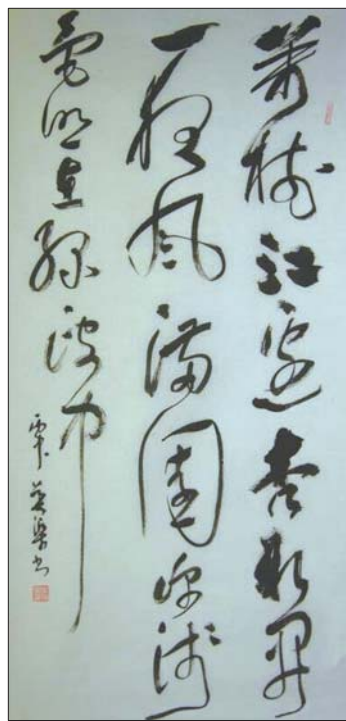 萬樹江邊杏新開
一夜風滿園深淺
色照在綠波中